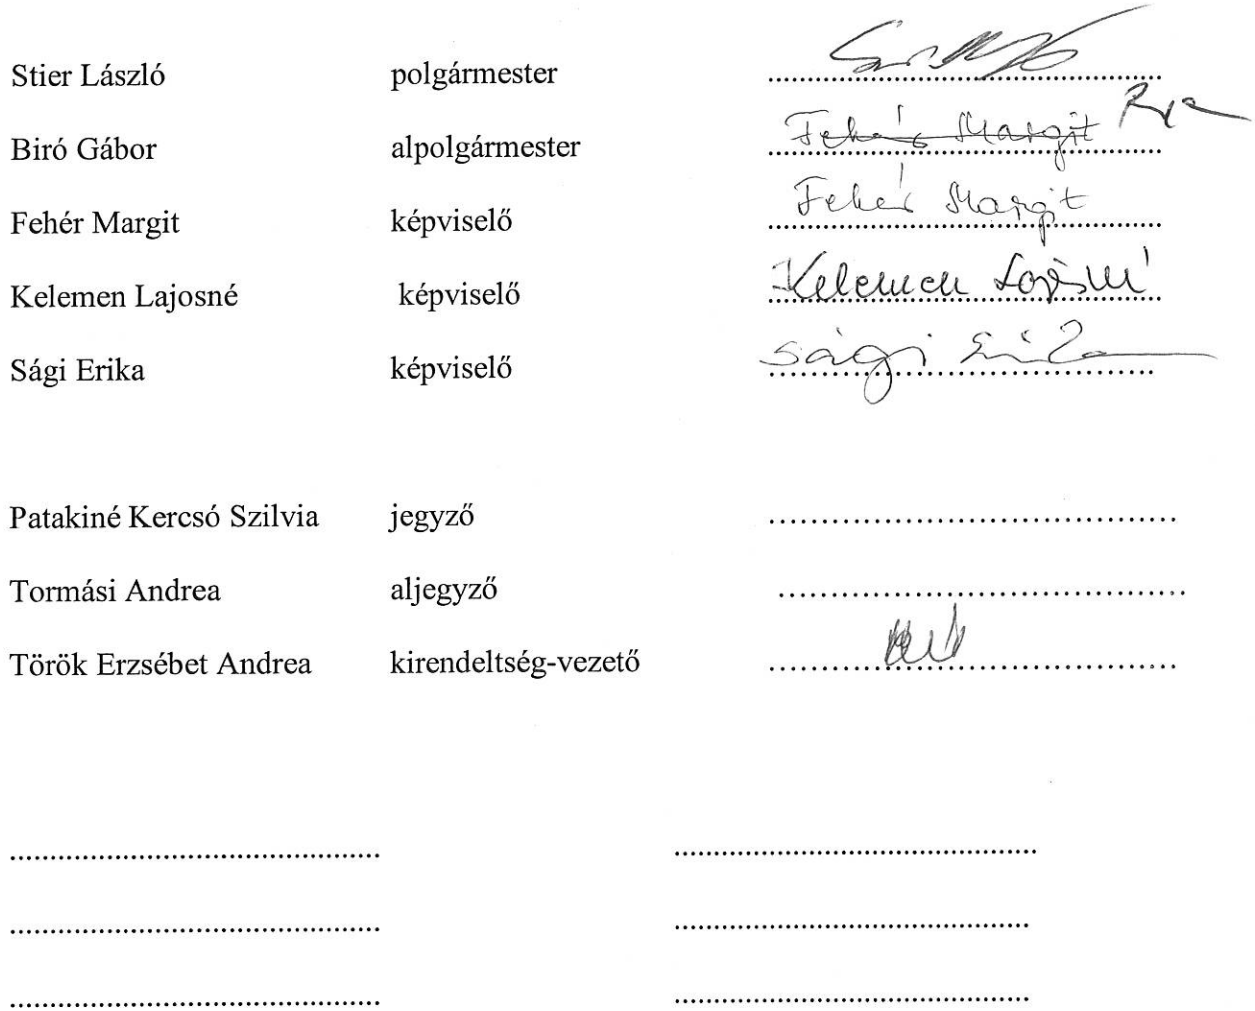 Stier László polgármester ........
Biró Gábor alpolgármester Fehér Margit
Fehér Margit képviselő Fehér Margit
Kelemen Lajosné képviselő Kelemen Lajosné
Sági Erika képviselő Sági Erika
Patakiné Kercsó Szilvia jegyző ........
Tormási Andrea aljegyző ........
Török Erzsébet Andrea kirendeltség-vezető ........